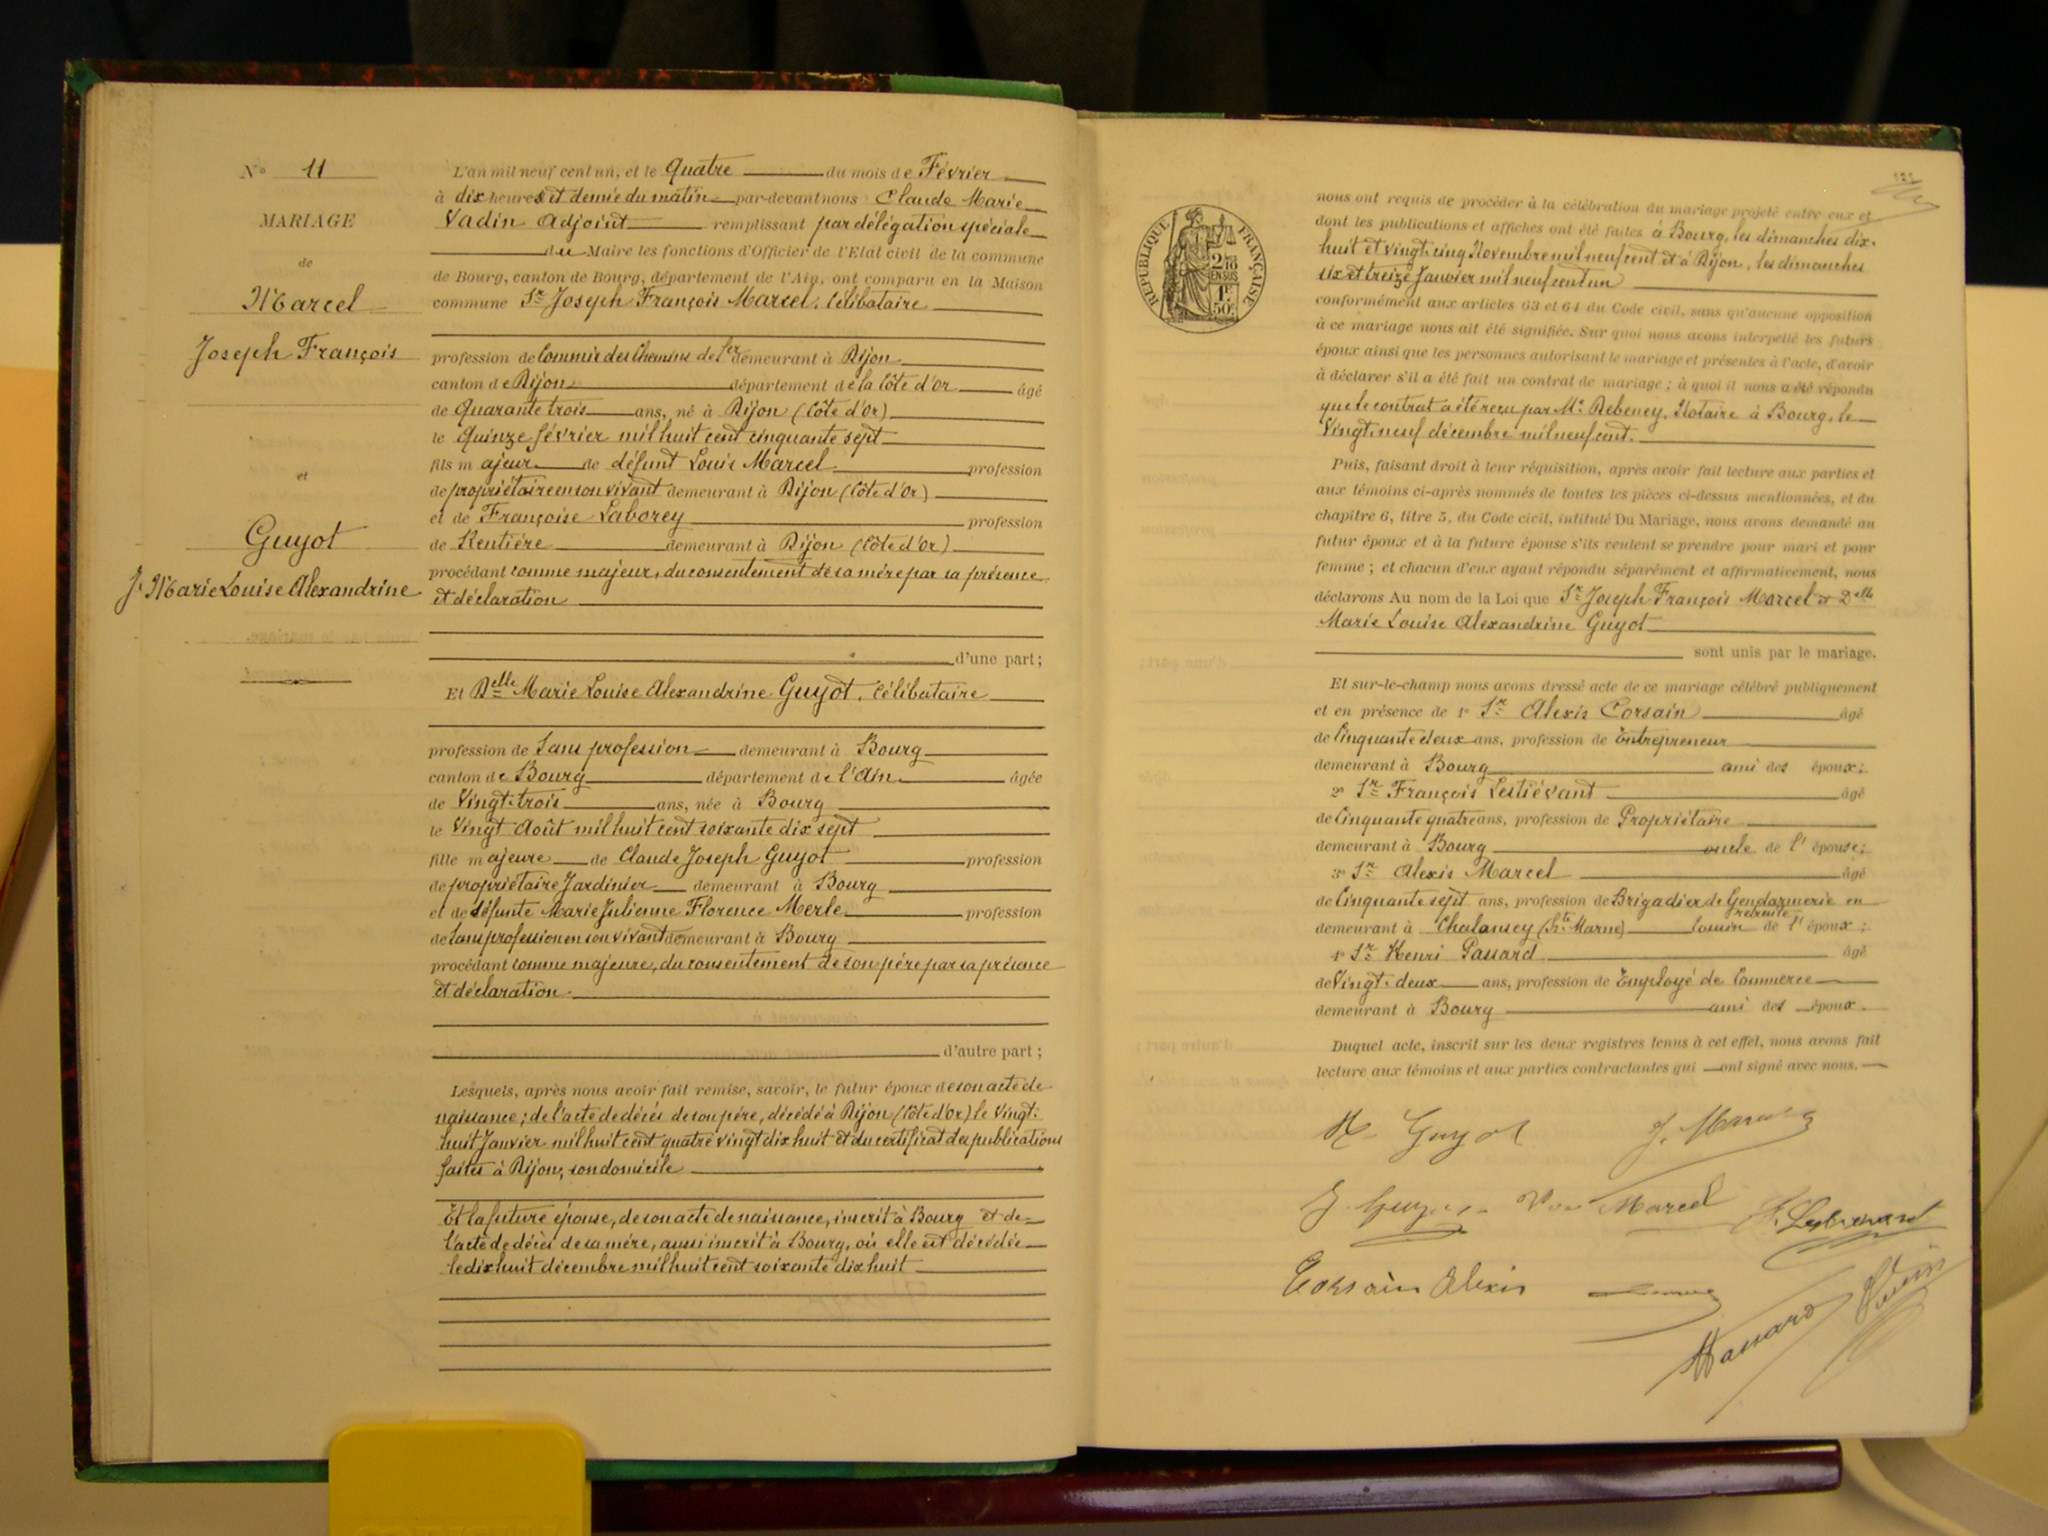 N° 11
MARIAGE
de
Marcel
Joseph François
et
Guyot
Marie Louise Alexandrine
L'an mil neuf cent un, et le Quatre du mois de Février
à dix heures et demie du matin par-devant nous Claude Marie
Vadin Adjoint remplissant par délégation spéciale
du Maire les fonctions d'Officier de l'Etat civil de la commune
de Bourg, canton de Bourg, département de l'Ain, ont comparu en la Maison
commune Sr Joseph François Marcel, Célibataire
profession de Commis des Chemins de fer demeurant à Dijon
canton de Dijon département de la Côte d'Or âgé
de Quarante trois ans, né à Dijon (Côte d'Or)
le Quinze février mil huit cent cinquante sept
fils majeur de défunt Louis Marcel profession
de propriétaire en son vivant demeurant à Dijon (Côte d'Or)
et de Françoise Laborey profession
de Rentière demeurant à Dijon (Côte d'Or)
procédant comme majeur, du consentement de sa mère par sa présence
et déclaration
d'une part;
Et Delle Marie Louise Alexandrine Guyot, Célibataire
profession de Sans profession demeurant à Bourg
canton de Bourg département de l'Ain âgée
de Vingt-trois ans, née à Bourg
le Vingt Août mil huit cent soixante dix sept
fille majeure de Claude Joseph Guyot profession
de propriétaire Jardinier demeurant à Bourg
et de défunte Marie Julienne Florence Merle profession
de Sans profession en son vivant demeurant à Bourg
procédant comme majeure, du consentement de son père par sa présence
et déclaration.
d'autre part;
Lesquels, après nous avoir fait remise, savoir, le futur époux de son acte de
naissance; de l'acte de décès de son père, décédé à Dijon (Côte d'Or) le Vingt-
huit Janvier mil huit cent quatre vingt dix huit et du certificat des publications
faites à Dijon, son domicile
Et la future épouse, de son acte de naissance, inscrit à Bourg et de
l'acte de décès de sa mère, aussi inscrit à Bourg, où elle est décédée
le dix huit décembre mil huit cent soixante dix huit
RÉPUBLIQUE FRANÇAISE
2/10
EN SUS
1F
50c
nous ont requis de procéder à la célébration du mariage projeté entre eux et
dont les publications et affiches ont été faites à Bourg, les dimanches dix-
huit et vingt cinq Novembre mil neuf cent et à Dijon, les dimanches
six et treize Janvier mil neuf cent un
conformément aux articles 63 et 64 du Code civil, sans qu'aucune opposition
à ce mariage nous ait été signifiée. Sur quoi nous avons interpellé les futurs
époux ainsi que les personnes autorisant le mariage et présentes à l'acte, d'avoir
à déclarer s'il a été fait un contrat de mariage; à quoi il nous a été répondu
que le contrat a été reçu par Me Debeney, Notaire à Bourg, le
Vingt-neuf décembre mil neuf cent.
Puis, faisant droit à leur réquisition, après avoir fait lecture aux parties et
aux témoins ci-après nommés de toutes les pièces ci-dessus mentionnées, et du
chapitre 6, titre 5, du Code civil, intitulé Du Mariage, nous avons demandé au
futur époux et à la future épouse s'ils veulent se prendre pour mari et pour
femme; et chacun d'eux ayant répondu séparément et affirmativement, nous
déclarons Au nom de la Loi que Sr Joseph François Marcel et Delle
Marie Louise Alexandrine Guyot
sont unis par le mariage.
Et sur-le-champ nous avons dressé acte de ce mariage célébré publiquement
et en présence de 1° Sr Alexis Corsain âgé
de Cinquante deux ans, profession de Entrepreneur
demeurant à Bourg ami des époux;
2° Sr François Lestiévant âgé
de Cinquante quatre ans, profession de Propriétaire
demeurant à Bourg oncle de l'épouse;
3° Sr Alexis Marcel âgé
de Cinquante sept ans, profession de Brigadier de Gendarmerie en
retraite
demeurant à Chalancey (Hte Marne) Cousin de l'époux;
4° Sr Henri Passard âgé
de Vingt-deux ans, profession de Employé de Commerce
demeurant à Bourg ami des époux.
Duquel acte, inscrit sur les deux registres tenus à cet effet, nous avons fait
lecture aux témoins et aux parties contractantes qui ont signé avec nous.
M Guyot J. Marcel
J. Guyot Marcel
Corsain Alexis
Passard Vadin